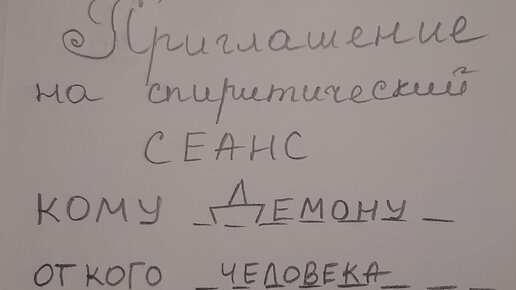 Приглашение
на спиритический
СЕАНС
КОМУ _ДЕМОНУ_
ОТ КОГО _ЧЕЛОВЕКА_ _ _